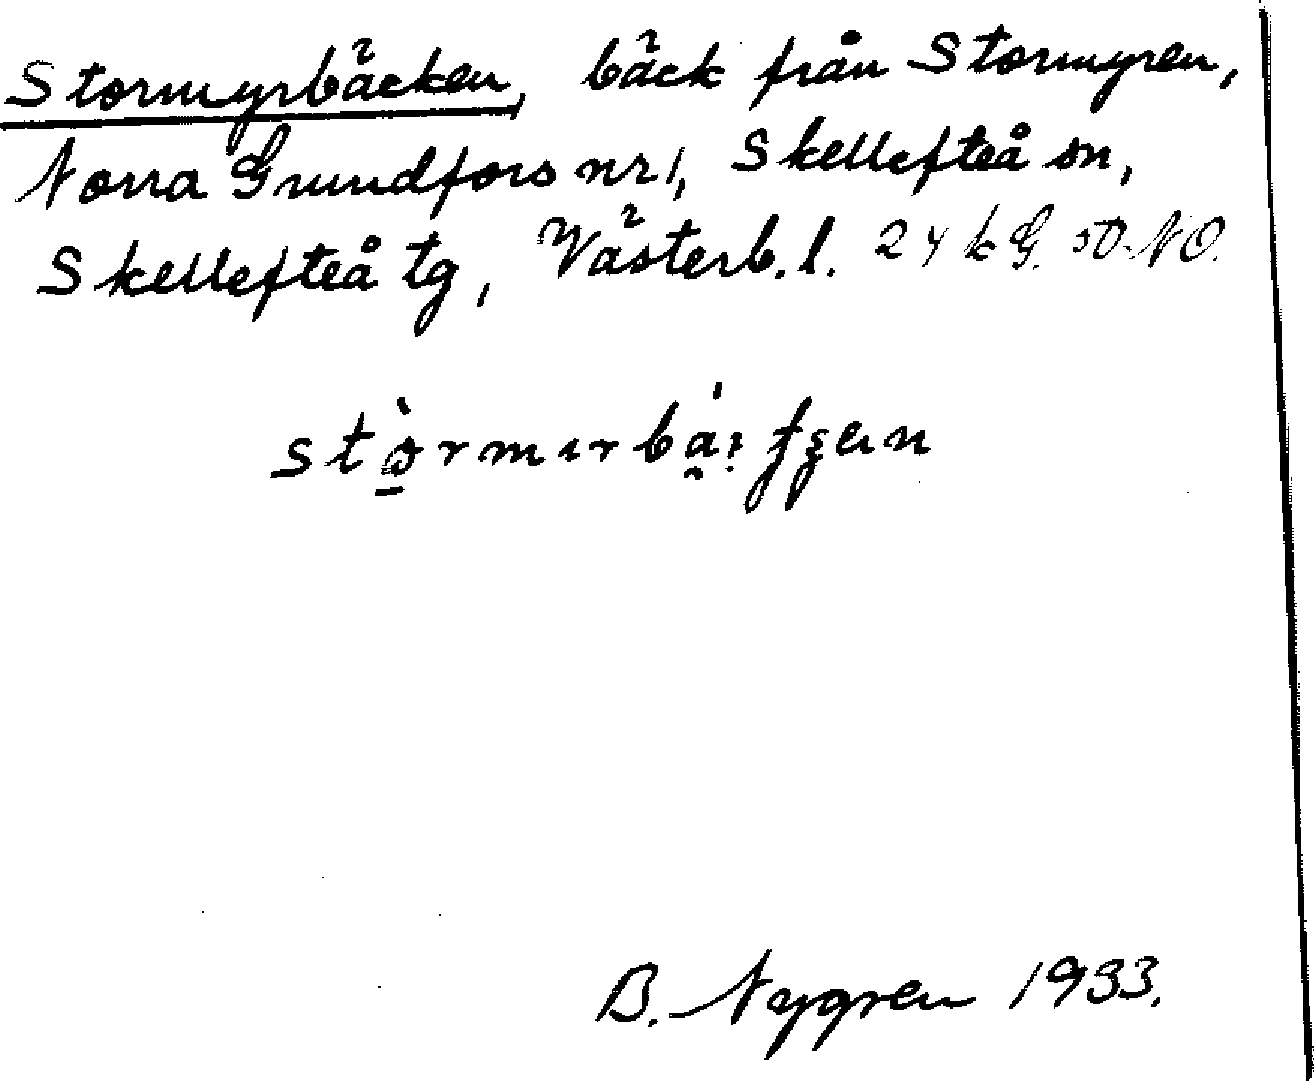 Stormyrbäcken, bäck från Stormyren,
Norra Grundfors nr 1, Skellefteå sn,
Skellefteå tg, Västerb. l. 24 k G. NO.
B. Nygren 1933.